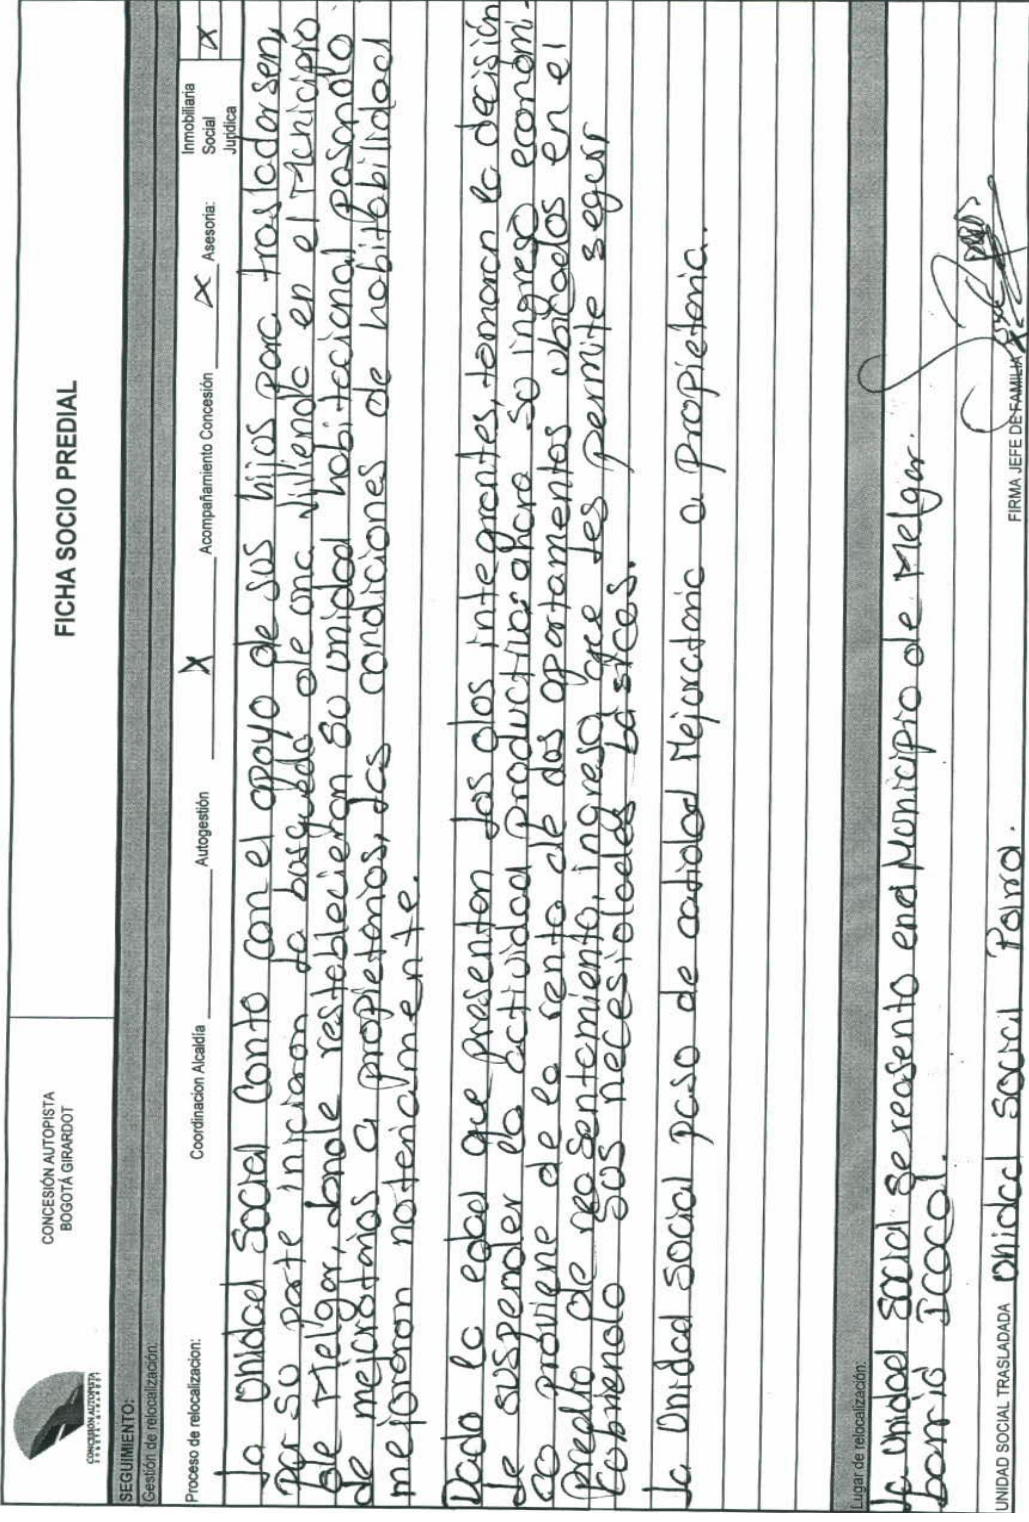 CONCESIÓN AUTOPISTA
BOGOTÁ GIRARDOT
CONCESIÓN AUTOPISTA
BOGOTÁ GIRARDOT
FICHA SOCIO PREDIAL
SEGUIMIENTO:
Gestión de relocalización:
Proceso de relocalizacion: Coordinacion Alcaldía Autogestión X Acompañamiento Concesión X Asesoria: Inmobiliaria
Social X
Juridica
La Unidad Social Conto con el apoyo de sus hijos para trasladarsen,
Por su parte iniciaron la busqueda de una vivienda en el Municipio
de Melgar, donde restablecieran su unidad habitacional pasando
de mejoratarios a propietarios, las condiciones de habitabilidad
mejoraron notoriamente.
Dado la edad que presentan los dos integrantes, tomaron la decisión
de suspender la actividad productiva: ahora su ingreso económi-
co proviene de la renta de dos apartamentos ubicados en el
predio de reasentamiento, ingreso que les permite seguir
cubriendo sus necesidades básicas.
La Unidad Social paso de calidad Mejorataria a propietaria.
Lugar de relocalización:
La Unidad Social se reasento en el Municipio de Melgar.
barrio Icacal.
UNIDAD SOCIAL TRASLADADA Unidad Social Parra.
FIRMA JEFE DE FAMILIA